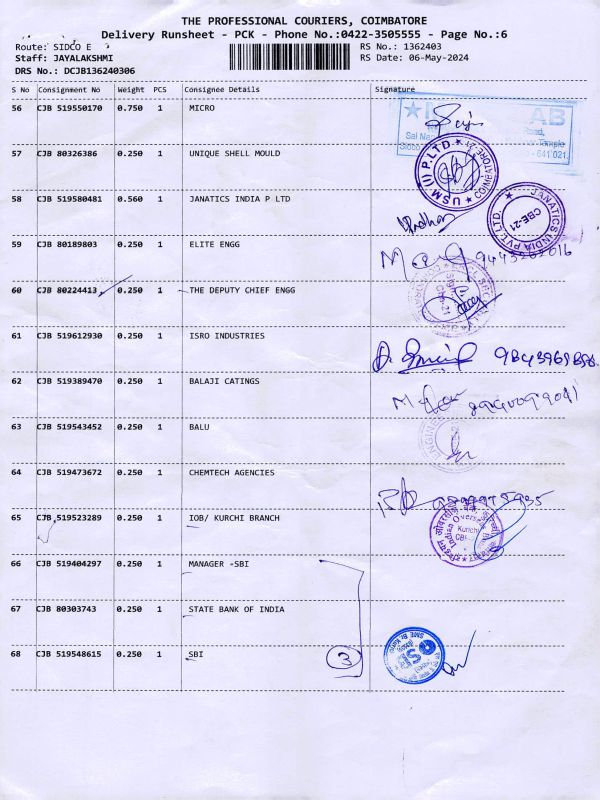 THE PROFESSIONAL COURIERS, COIMBATORE
Delivery Runsheet - PCK - Phone No.:0422-3505555 - Page No.:6
Route: SIDCO E
RS No.: 1362403
Staff: JAYALAKSHMI
RS Date: 06-May-2024
DRS No.: DCJB136240306
S No Consignment No Weight PCS Consignee Details Signature
56 CJB 519550170 0.750 1 MICRO
AB
Road,
- 641 021.
57 CJB 80326386 0.250 1 UNIQUE SHELL MOULD
USM (I) P.LTD * COIMBATORE-21 *
58 CJB 519580481 0.560 1 JANATICS INDIA P LTD
JANATICS INDIA PVT. LTD.
CBE-21
59 CJB 80189803 0.250 1 ELITE ENGG
60 CJB 80224413 0.250 1 THE DEPUTY CHIEF ENGG
61 CJB 519612930 0.250 1 ISRO INDUSTRIES
62 CJB 519389470 0.250 1 BALAJI CATINGS
63 CJB 519543452 0.250 1 BALU
64 CJB 519473672 0.250 1 CHEMTECH AGENCIES
65 CJB 519523289 0.250 1 IOB/ KURCHI BRANCH
Indian Overseas
Kurichi
66 CJB 519404297 0.250 1 MANAGER -SBI
67 CJB 80303743 0.250 1 STATE BANK OF INDIA
68 CJB 519548615 0.250 1 SBI
3